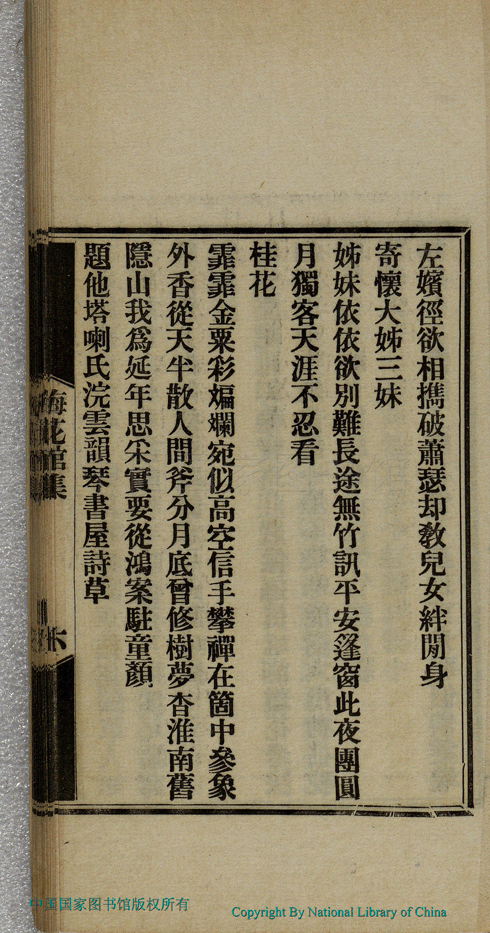 左嬪徑欲相攜破蕭瑟却教兒女絆閒身
寄懷大姊三妹
姊妹依依欲別難長途無竹訊平安篷窗此夜團圓
月獨客天涯不忍看
桂花
霏霏金粟彩斒斕宛似高空信手攀禪在箇中參象
外香從天半散人間斧分月底曾修樹夢杳淮南舊
隱山我爲延年思采實要從鴻案駐童顏
題他塔喇氏浣雲韻琴書屋詩草
梅花館集
中国国家图书馆版权所有
Copyright By National Library of China